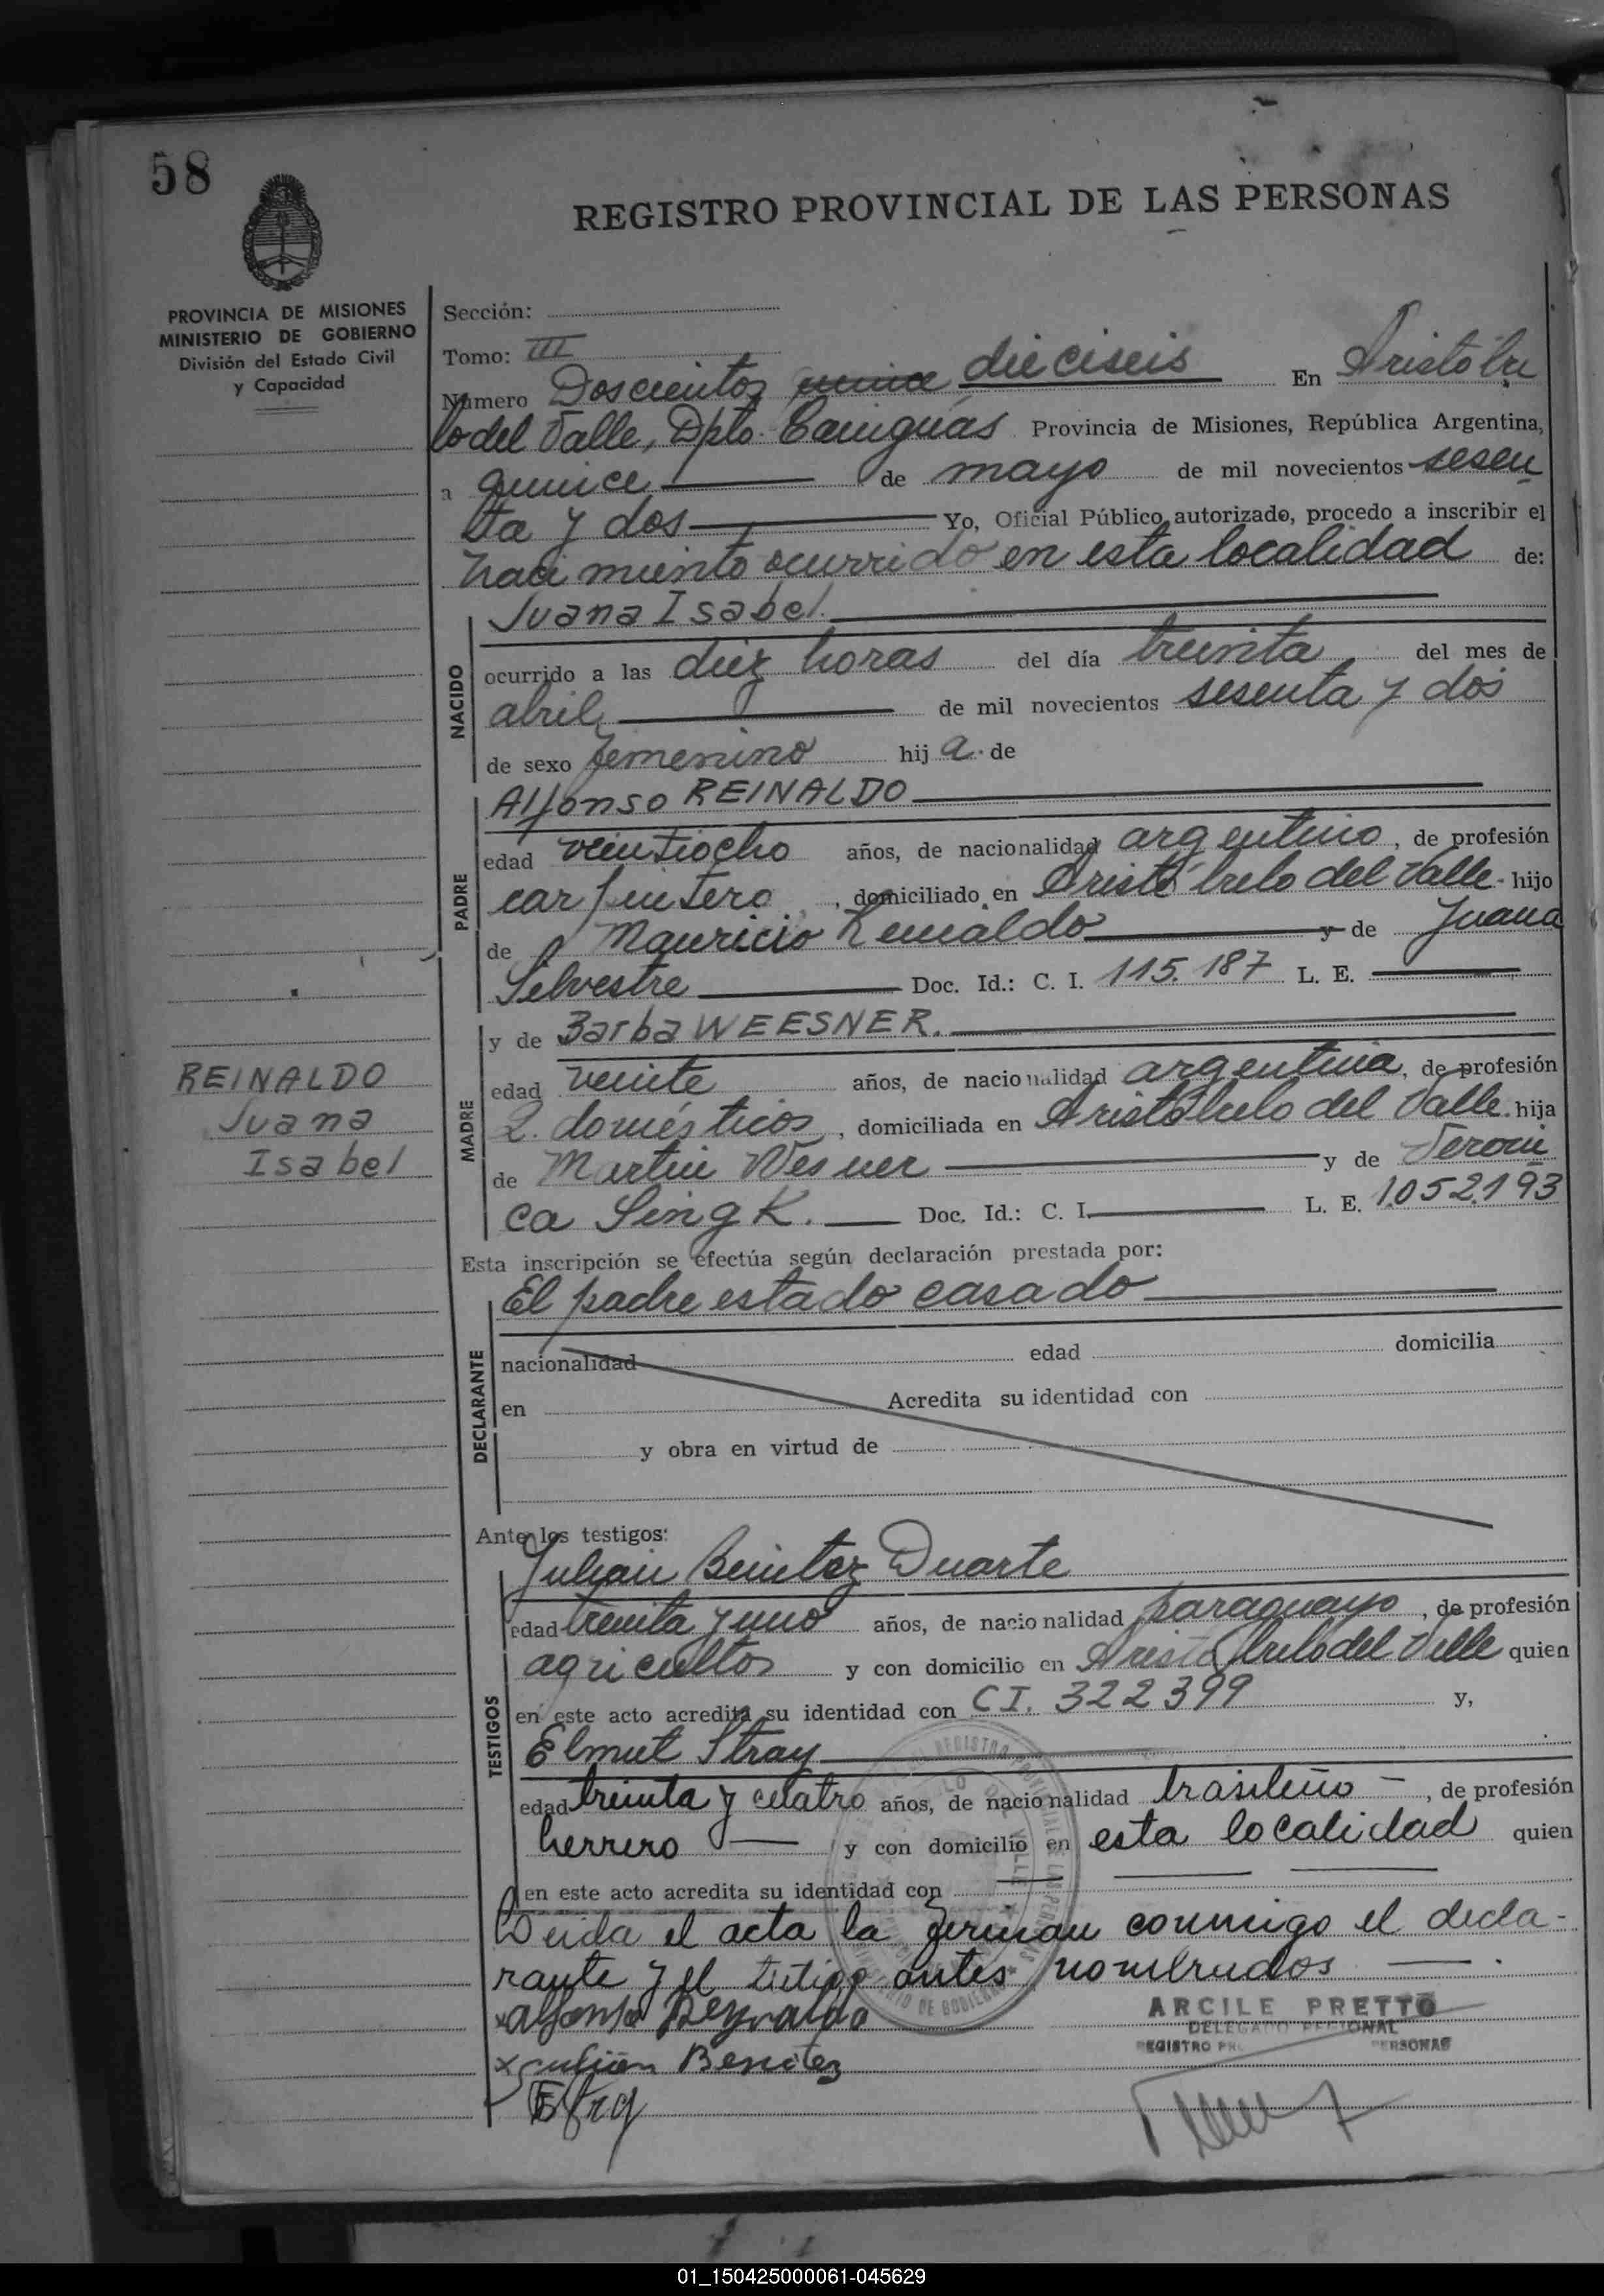 58
REGISTRO PROVINCIAL DE LAS PERSONAS
PROVINCIA DE MISIONES
MINISTERIO DE GOBIERNO
División del Estado Civil
y Capacidad
Sección:
Tomo: III
Número Doscientos quince dieciseis En Aristóbu
lo del Valle, Dpto. Cainguás Provincia de Misiones, República Argentina,
a quince de mayo de mil novecientos sesen
ta y dos Yo, Oficial Público autorizado, procedo a inscribir el
nacimiento ocurrido en esta localidad de:
NACIDO
Juana Isabel.
ocurrido a las diez horas del día treinta del mes de
abril de mil novecientos sesenta y dos
de sexo femenino hij a. de
PADRE
Alfonso REINALDO
edad veintiocho años, de nacionalidad argentino, de profesión
carpintero, domiciliado en Aristóbulo del Valle - hijo
de Mauricio Reinaldo y de Juana
Silvestre Doc. Id.: C. I. 115.187 L. E.
MADRE
y de Barba WEESNER.
edad veinte años, de nacionalidad argentina, de profesión
Q. domésticos, domiciliada en Aristóbulo del Valle. hija
de Martin Wesner y de Veroni
ca Singk. Doc. Id.: C. I. L. E. 1.052.193
REINALDO
Juana
Isabel
Esta inscripción se efectúa según declaración prestada por:
DECLARANTE
El padre estado casado
nacionalidad edad domicilia
en Acredita su identidad con
y obra en virtud de
Ante los testigos:
TESTIGOS
Julian Benitez Duarte
edad treinta y uno años, de nacionalidad paraguayo, de profesión
agricultor y con domicilio en Aristóbulo del Valle quien
en este acto acredita su identidad con CI. 322399 y,
Elmut Stray
edad treinta y cuatro años, de nacionalidad brasileño -, de profesión
herrero y con domicilio en esta localidad quien
en este acto acredita su identidad con
Leida el acta la firman conmigo el decla-
rante y el testigo antes nombrados
Alfonso Reynaldo
ARCILE PRETTO
DELEGADO REGIONAL
REGISTRO PERSONAS
x Julian Benitez
01_150425000061-045629